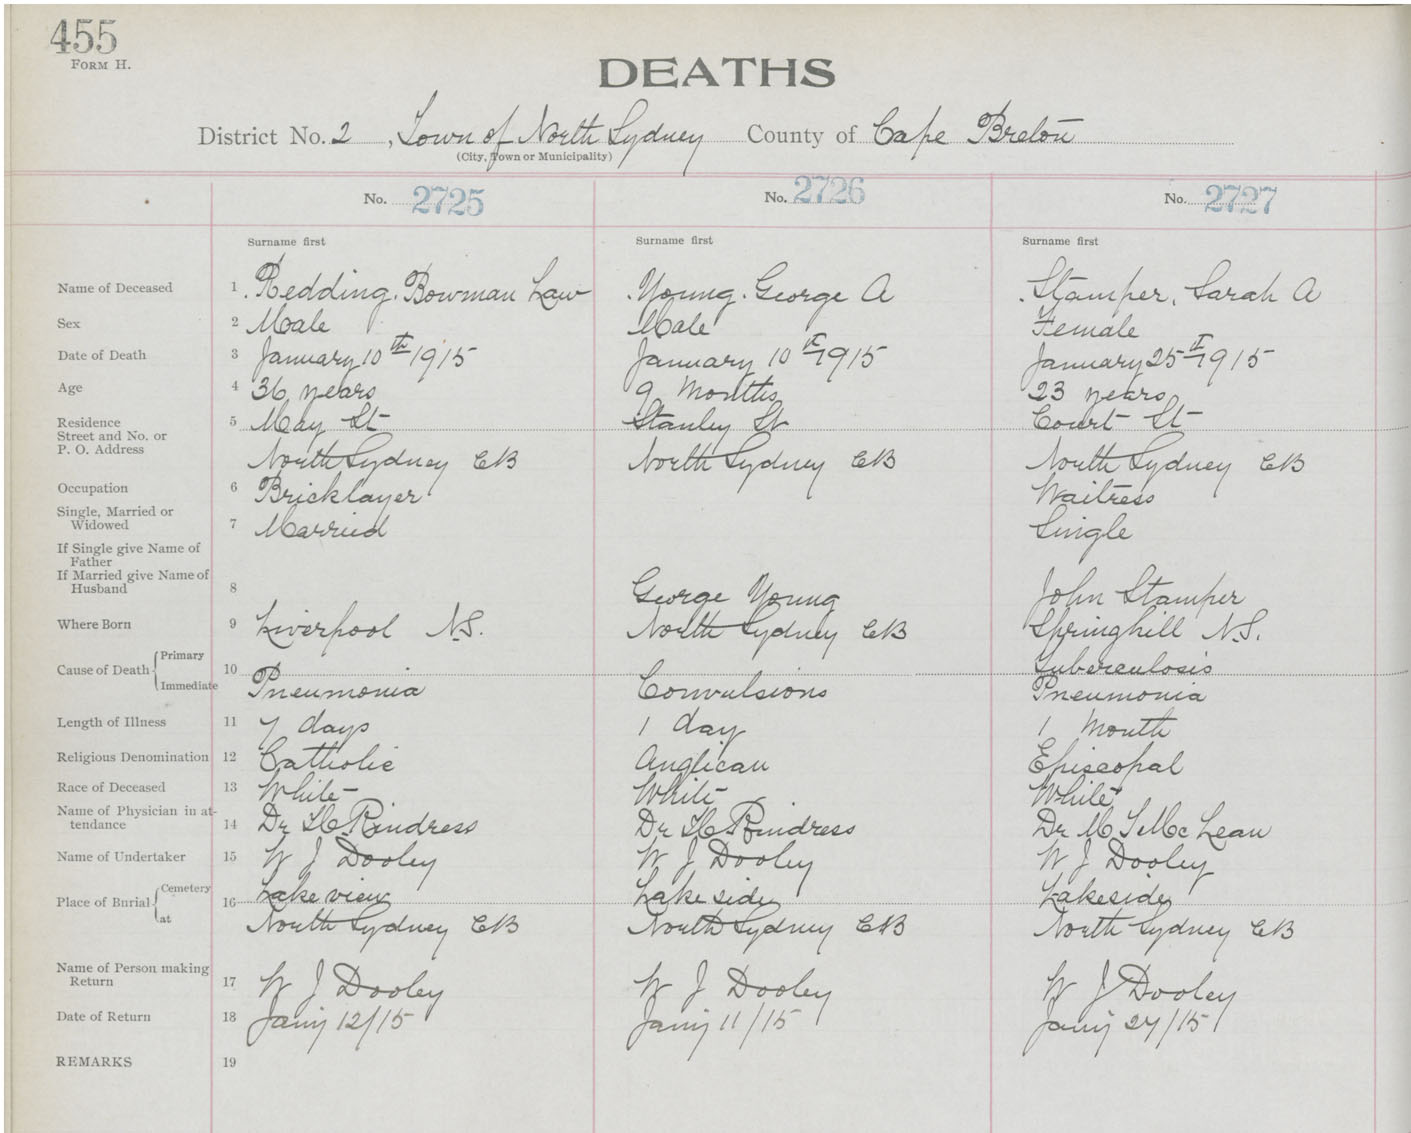 455
FORM H.
DEATHS
District No. 2, Town of North Sydney County of Cape Breton
(City, Town or Municipality)
No. 2725 No. 2726 No. 2727
Surname first Surname first Surname first
Name of Deceased 1 Redding. Bowman Law Young. George A Stamper, Sarah A
Sex 2 Male Male Female
Date of Death 3 January 10th 1915 January 10th 1915 January 25th 1915
Age 4 36 years 9 Months 23 years
Residence 5 May St Stanley St Court St
Street and No. or
P. O. Address North Sydney CB North Sydney CB North Sydney CB
Occupation 6 Bricklayer Waitress
Single, Married or
Widowed 7 Married Single
If Single give Name of
Father
If Married give Name of
Husband 8 George Young John Stamper
Where Born 9 Liverpool N.S. North Sydney CB Springhill N.S.
Cause of Death Primary 10 Tuberculosis
Immediate Pneumonia Convulsions Pneumonia
Length of Illness 11 7 days 1 day 1 Month
Religious Denomination 12 Catholic Anglican Episcopal
Race of Deceased 13 White White White
Name of Physician in at-
tendance 14 Dr H Rindress Dr H Rindress Dr M McLean
Name of Undertaker 15 W J Dooley W J Dooley W J Dooley
Place of Burial Cemetery 16 Lakeview Lakeside Lakeside
at North Sydney CB North Sydney CB North Sydney CB
Name of Person making
Return 17 W J Dooley W J Dooley W J Dooley
Date of Return 18 Jany 12/15 Jany 11/15 Jany 27/15
REMARKS 19